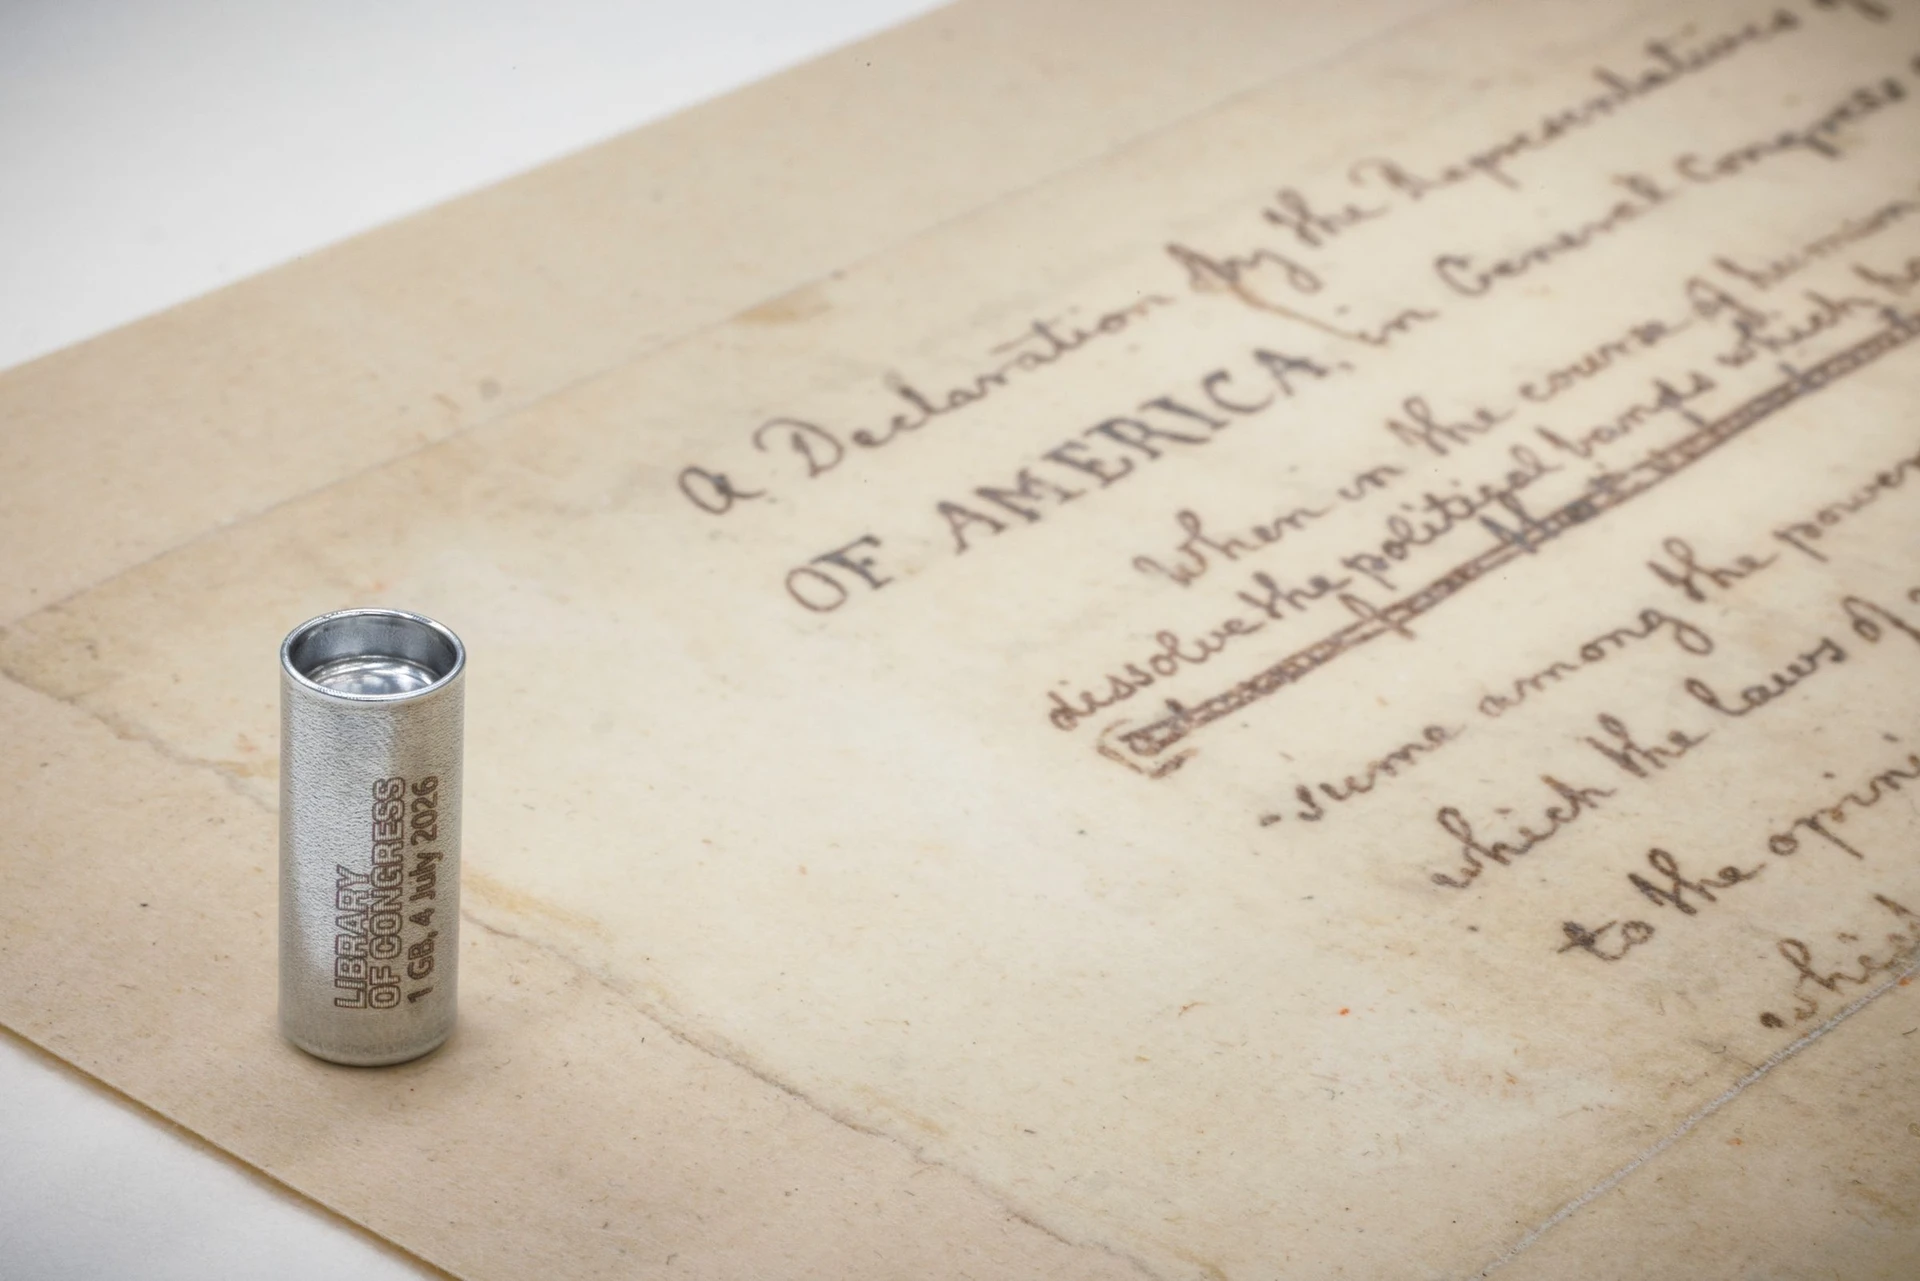 LIBRARY
OF CONGRESS
1 GB, 4 July 2026
a Declaration by the Representatives of
OF AMERICA, in General Congress
When in the course of human
dissolve the political bands which ha
-sume among the powers
which the laws of
to the opini
which